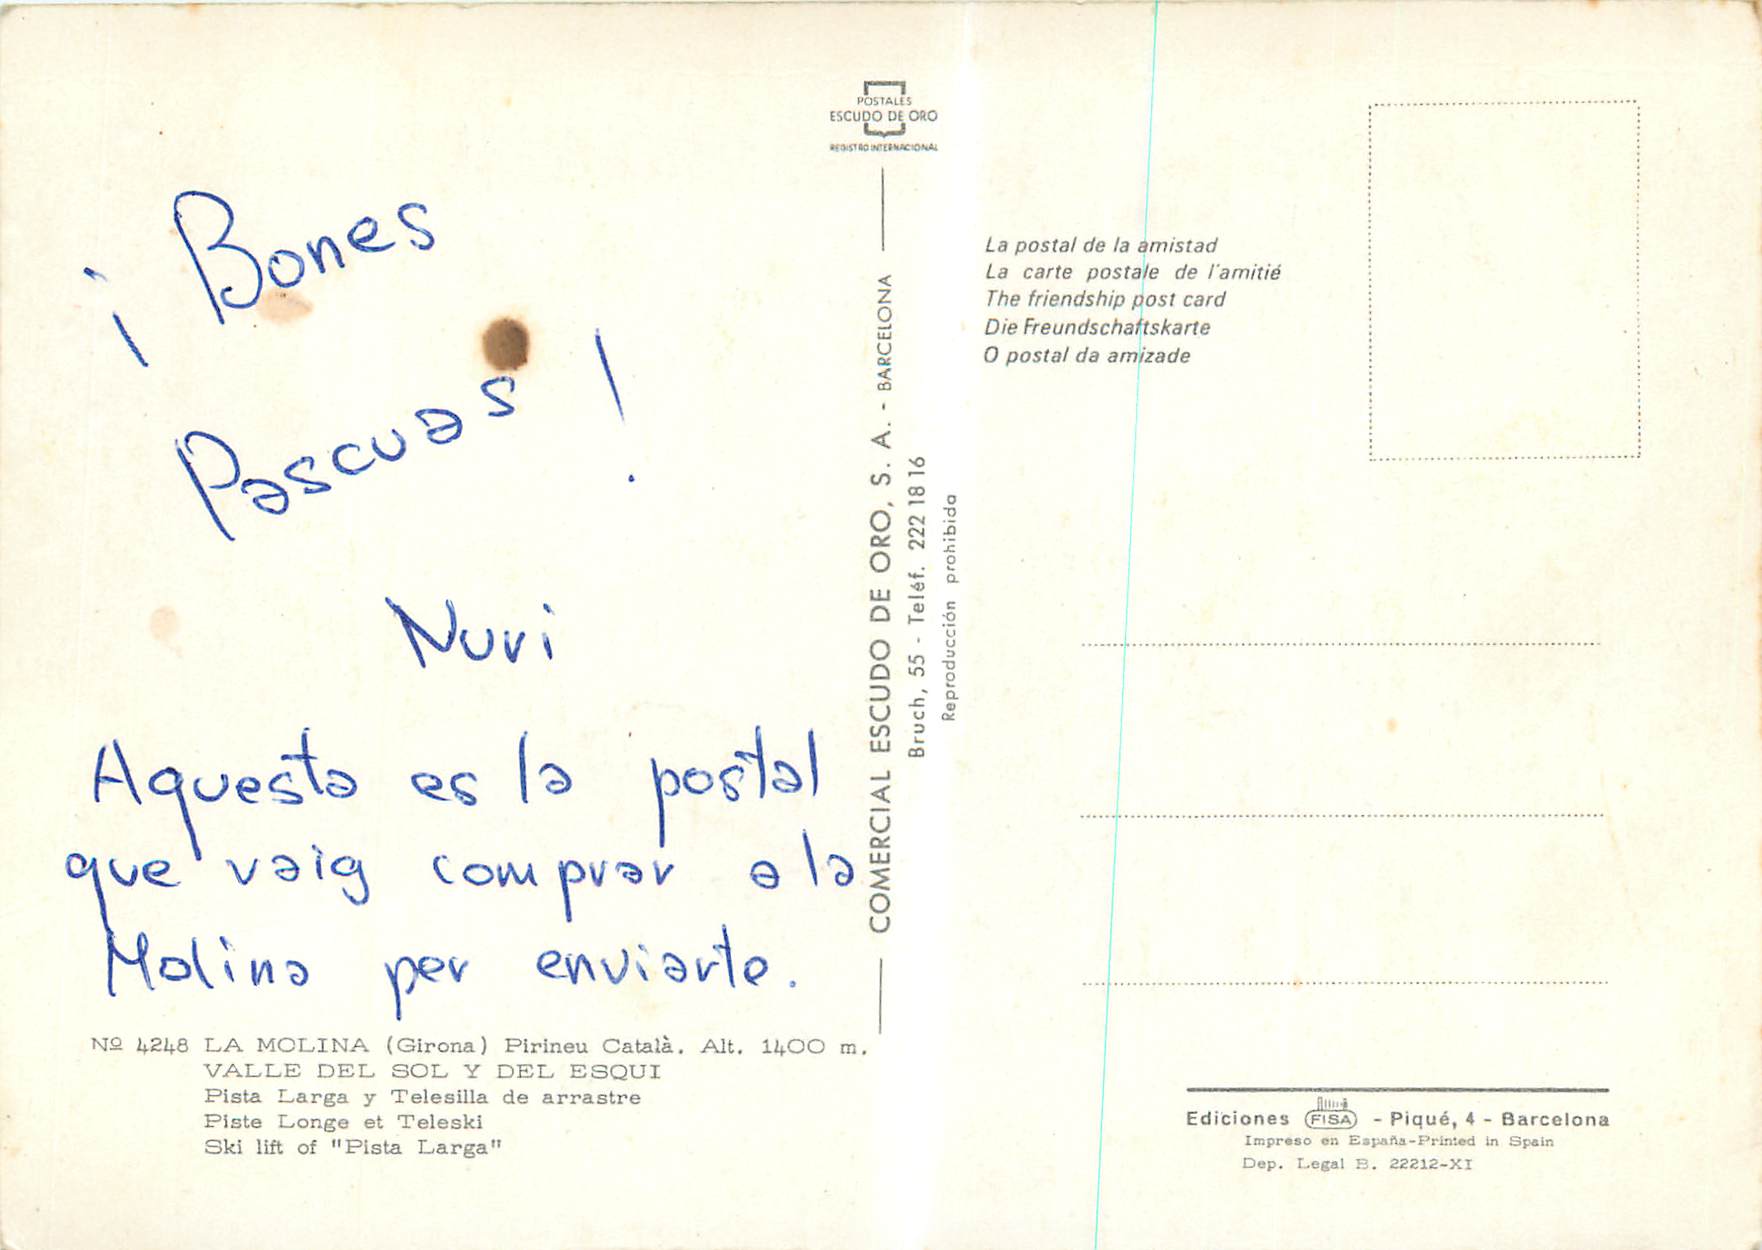 ¡ Bones
Pascuas !
Nuri
Aquesta es la postal
que vaig comprar a la
Molina per enviarte.
Nº 4248 LA MOLINA (Girona) Pirineu Català. Alt. 1400 m.
VALLE DEL SOL Y DEL ESQUI
Pista Larga y Telesilla de arrastre
Piste Longe et Teleski
Ski lift of "Pista Larga"
POSTALES
ESCUDO DE ORO
REGISTRO INTERNACIONAL
COMERCIAL ESCUDO DE ORO, S. A. - BARCELONA
Bruch, 55 - Teléf. 222 18 16
Reproducción prohibida
La postal de la amistad
La carte postale de l'amitié
The friendship post card
Die Freundschaftskarte
O postal da amizade
Ediciones FISA - Piqué, 4 - Barcelona
Impreso en España-Printed in Spain
Dep. Legal B. 22212-XI